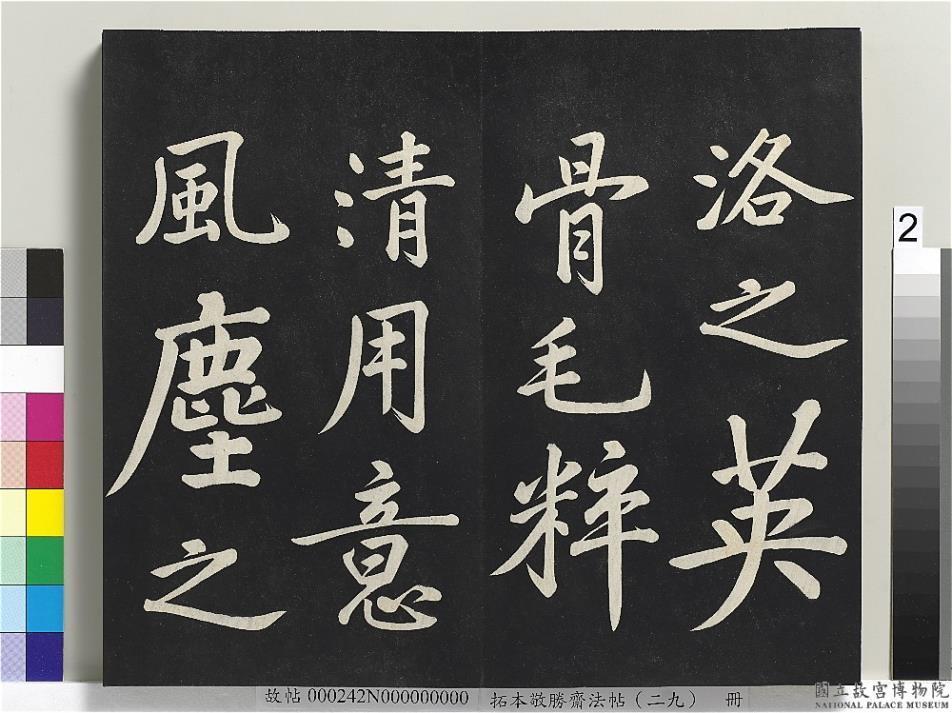 洛之英
骨毛粹
清用意
風塵之
2
故帖 000242N000000000 拓本敬勝齋法帖（二九） 冊
國立故宮博物院
NATIONAL PALACE MUSEUM